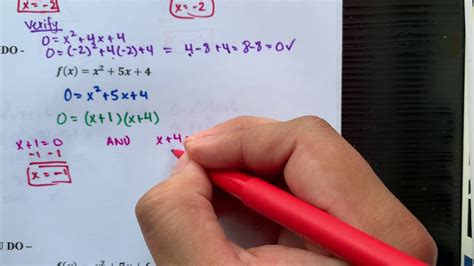 x = -2
x = -2
Verify
0 = x² + 4x + 4
0 = (-2)² + 4(-2) + 4 = 4 - 8 + 4 = 8 - 8 = 0 ✓
DO -
f(x) = x² + 5x + 4
0 = x² + 5x + 4
0 = (x+1)(x+4)
x + 1 = 0 AND x + 4 =
-1 -1
x = -1
U DO –